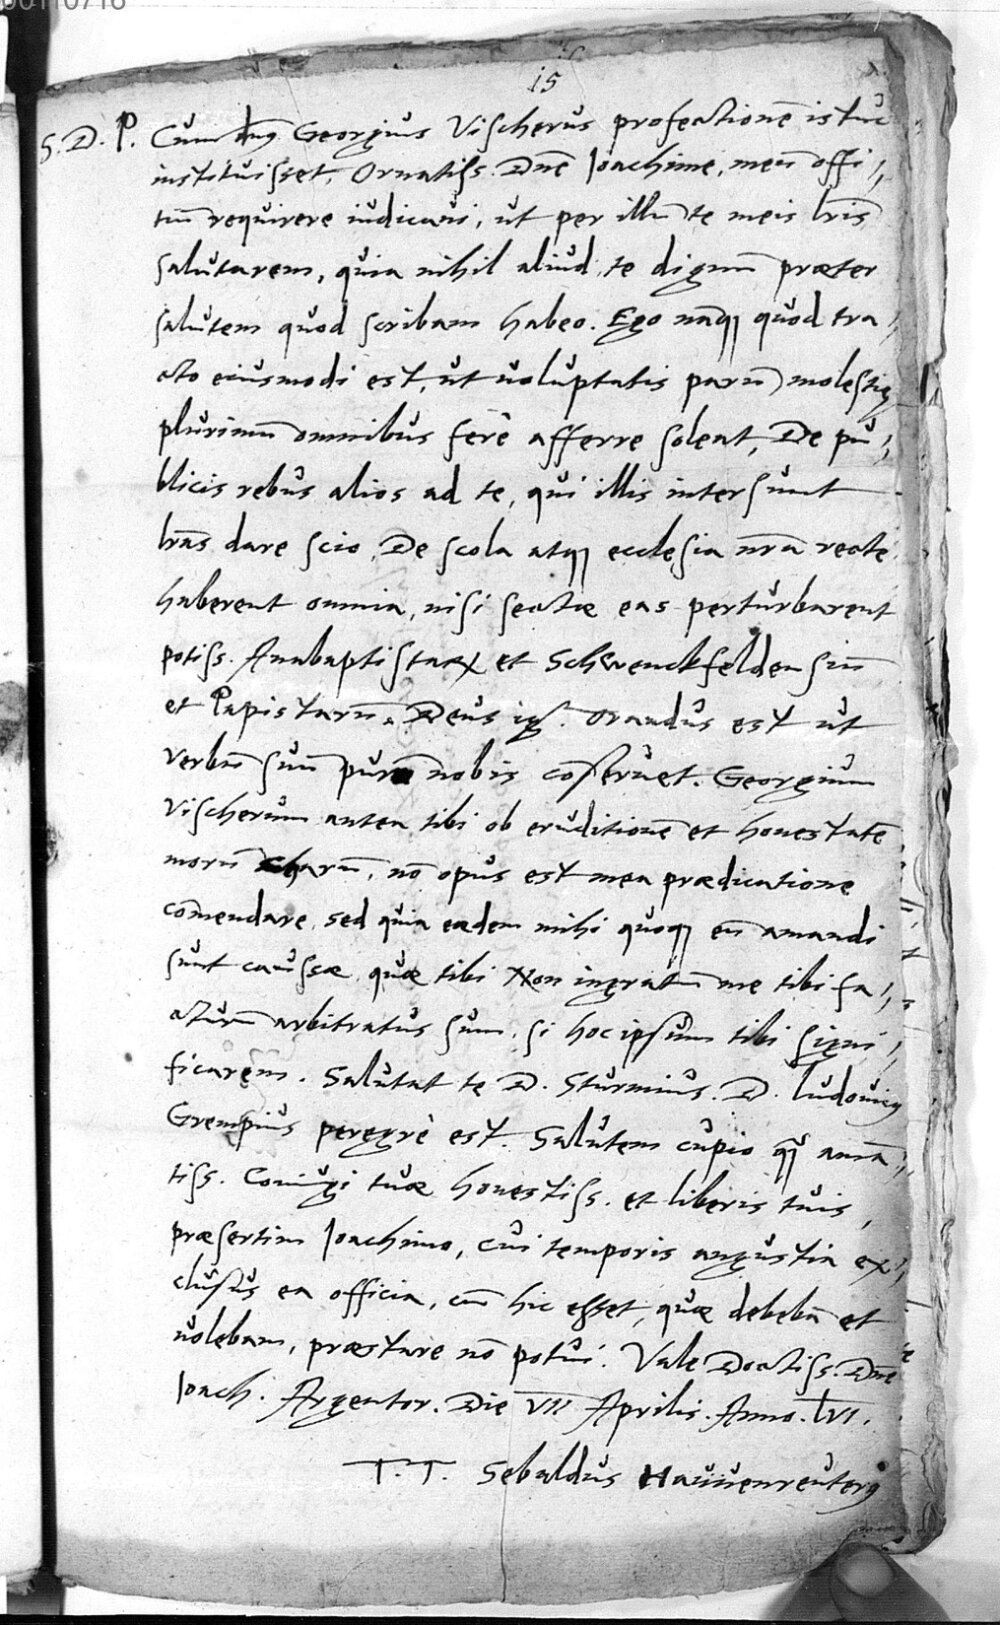 00110716
15
S. D. P. Cum dn̄s Georgius Vischerus profectionē istuc
instituisset, Ornatiss. Dn̄e Ioachime, meū offi,,
tiū requirere iudicaui, ut per illū te meis lr̄is
salutarem, quia nihil aliud te dignū præter
salutem quod scribam habeo. Ego naqꝫ quod tra,,
cto eiusmodi est, ut uoluptatis parū molestię
plurimū omnibus ferè afferre soleat, De pu,,
blicis rebus alios ad te, qui illis intersunt
lr̄as dare scio, De scola atqꝫ ecclesia nr̄a recte
haberent omnia, nisi sectæ eas perturbarent
potiss. Anabaptistarꝝ et Schwenckfeldensiū
et Papistarū. Deus igr̄. orandus est ut
verbū suū purū nobis cōseruet. Georgium
Vischerum antea tibi ob eruditionē et honestatē
morū charū, nō opus est mea prædicatione
com̄endare, sed quia eædem mihi quoqꝫ eū amandi
sunt caussæ quæ tibi Non ingratū me tibi fa,,
cturū arbitratus sum, si hoc ipsum tibi signi,,
ficarem. Salutat te D. Sturmius. D. Ludouicꝰ
Grempius peregrè est. Salutem cupio qꝫ amā,,
tiss. Coniugi tuæ honestiss. et liberis tuis,
præsertim Ioachimo, cui temporis angustia ex,,
clusus ea officia, cū hic esset, quæ debebā et
uolebam, præstare nō potui. Vale Doctiss. Dn̄e
Ioach. Argentor. Die VII Aprilis. Anno. LVI.
T. T. Sebaldus Hauuenreuterꝰ